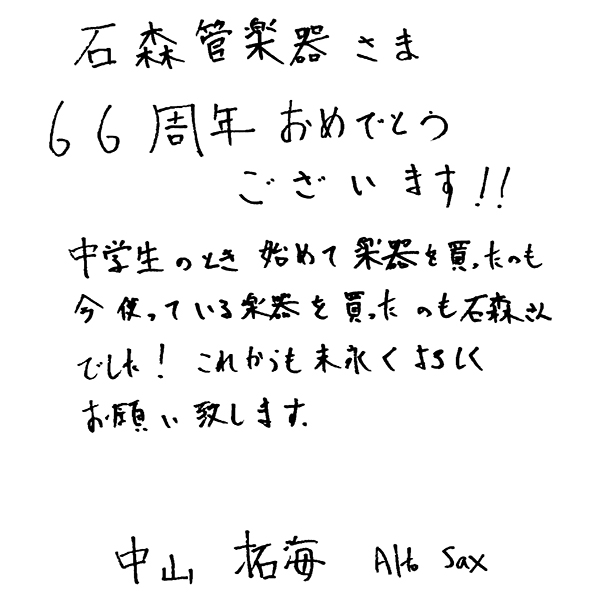 石森管楽器さま
66周年おめでとう
ございます!!
中学生のとき 始めて楽器を買ったのも
今使っている楽器を買ったのも石森さん
でした! これからも末永くよろしく
お願い致します.
中山 拓海 Alto Sax